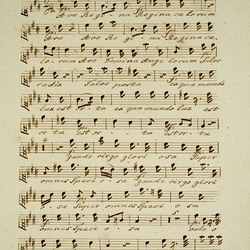 Ave Regina Regina celorum
Ave Ave Regina Regina ca
lorum Ave Domina Angelorum Salve
radix Salve porta ex qua mundo
lux est orta ex qua mundo lux est
orta est orta est orta
Gaude virgo gloriosa super
omnes speciosa Gaude virgo glori
osa super omnes speciosa
omnes speciosa vale o